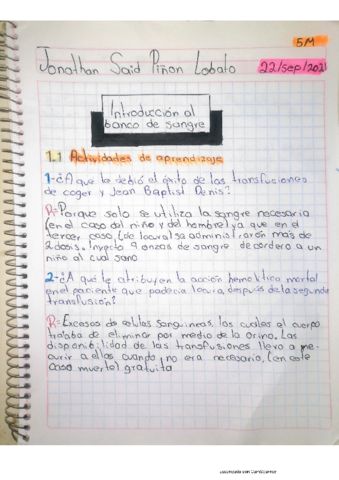 5M
Jonathan Said Piñon Lobato 22/sep/2021
Introducción al
banco de sangre
1.1 Actividades de aprendizaje
1-¿A que le debió el éxito de las transfuciones
de coger y Jean Baptist Denis?
R=Porque solo se utiliza la sangre necesaria
(en el caso del niño y del hombre) ya que en el
tercer caso, (de locura) se administrarón más de
2 dosis. Inyecto 9 onzas de sangre de cordero a un
niño al cual sano
2-¿A qué le atribuyen la acción hemolítica mortal
en el paciente que padecia locura, después de la segunda
transfusión?
R=Excesos de celulas sanguineas, las cuales el cuerpo
trataba de eliminar por medio de la orina. Las
disponibilidad de las transfusiones llevo a re-
currir a ellas cuando no era necesario, (en este
caso muerte) gratuita
Escaneado con CamScanner